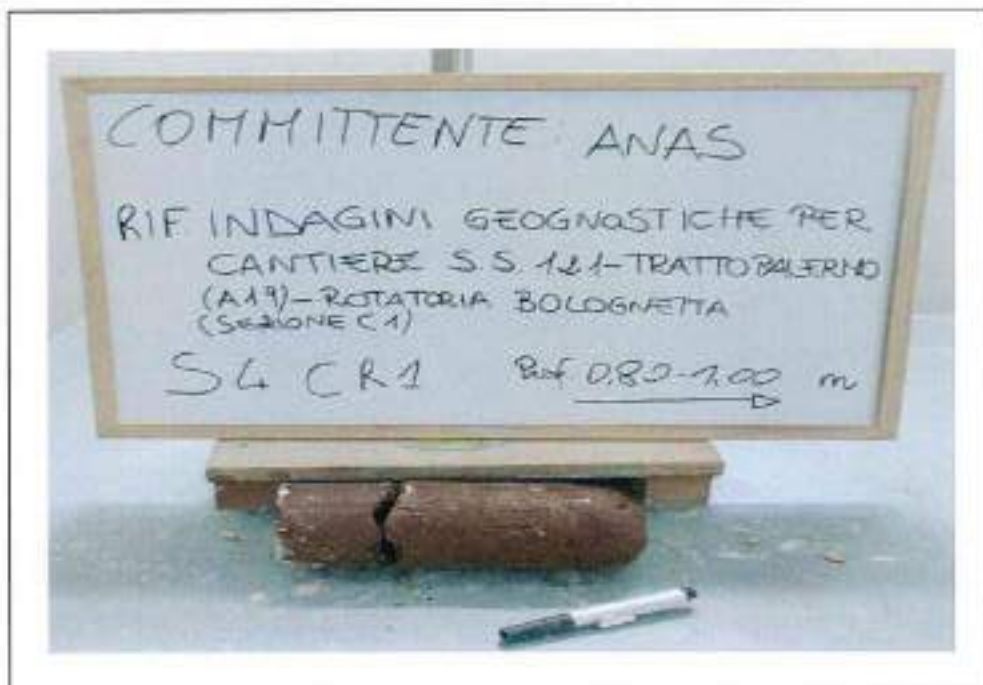 COMMITTENTE: ANAS
RIF INDAGINI GEOGNOSTICHE PER
CANTIERE S.S. 121-TRATTO PALERMO
(A19)-ROTATORIA BOLOGNETTA
(SEZIONE C1)
S4 CR1 Prof. 0.80-1.00 m